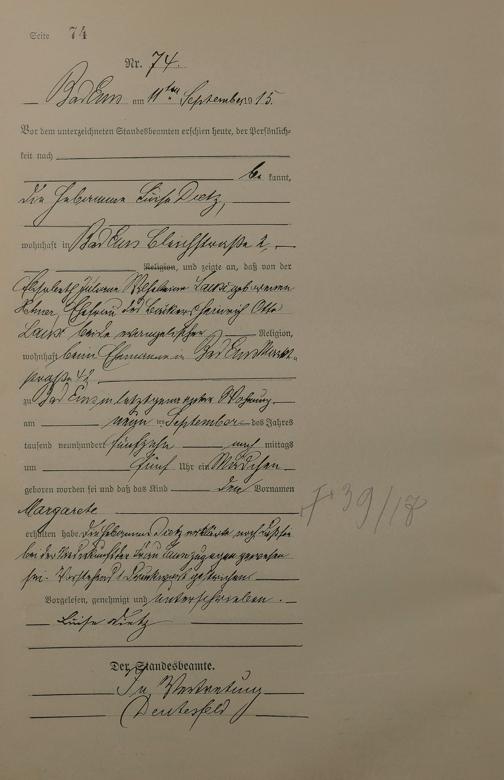 Seite 74
Nr. 74.
Bad Ems am 11ten September 1915.
Vor dem unterzeichneten Standesbeamten erschien heute, der Persönlich-
keit nach
be kannt,
die Hebamme Luise Dietz,
wohnhaft in Bad Ems Bleichstraße 2,
Religion, und zeigte an, daß von der
Elisabeth Juliane Wilhelmine geborenen
Ehefrau des Bäckers Heinrich Otto
beide evangelischer Religion,
wohnhaft beim Ehemanne in Bad Ems Markt-
straße 42
zu Bad Ems in letztgenannter Wohnung
am neun ten September des Jahres
tausend neunhundert fünfzehn nach mittags
um fünf Uhr ein Mädchen
geboren worden sei und daß das Kind den Vornamen
Margarete
erhalten habe. Die Hebamme Dietz erklärte, daß sie
bei der Niederkunft der Frau zugegen gewesen
sei. Vorstehend 1 Druckwort gestrichen
Vorgelesen, genehmigt und unterschrieben.
Luise Dietz
Der Standesbeamte.
In Vertretung
† 39/17